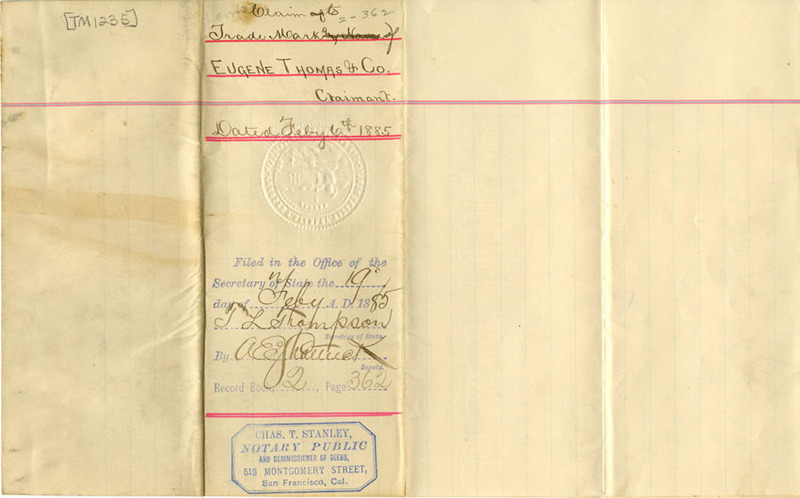 [TM1235]
Claim of to
2-362
Trade Mark by Name of
EUGENE THOMAS & Co.
Claimant.
Dated Feby 6th 1885
Filed in the Office of the
Secretary of State the 19"
day of Feby A. D. 1885
T L Thompson
Secretary of State
By A E Shattuck
Deputy.
Record Book, 2, Page 362
CHAS. T. STANLEY,
NOTARY PUBLIC
AND COMMISSIONER OF DEEDS,
513 MONTGOMERY STREET,
San Francisco, Cal.